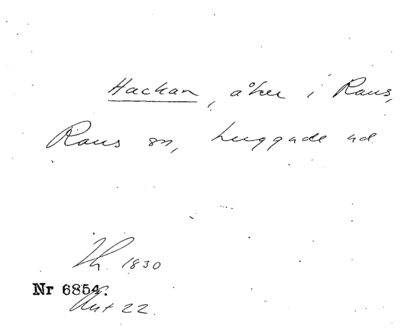 Hackan, åker i Raus,
Raus sn, Luggude hd
Th. 1830
Nr 6854.
Akt 22.